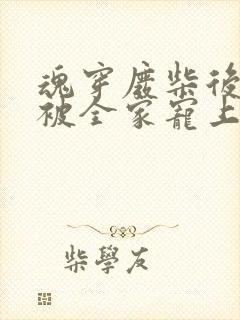 魂穿廢柴後
被全家寵上
柴學友